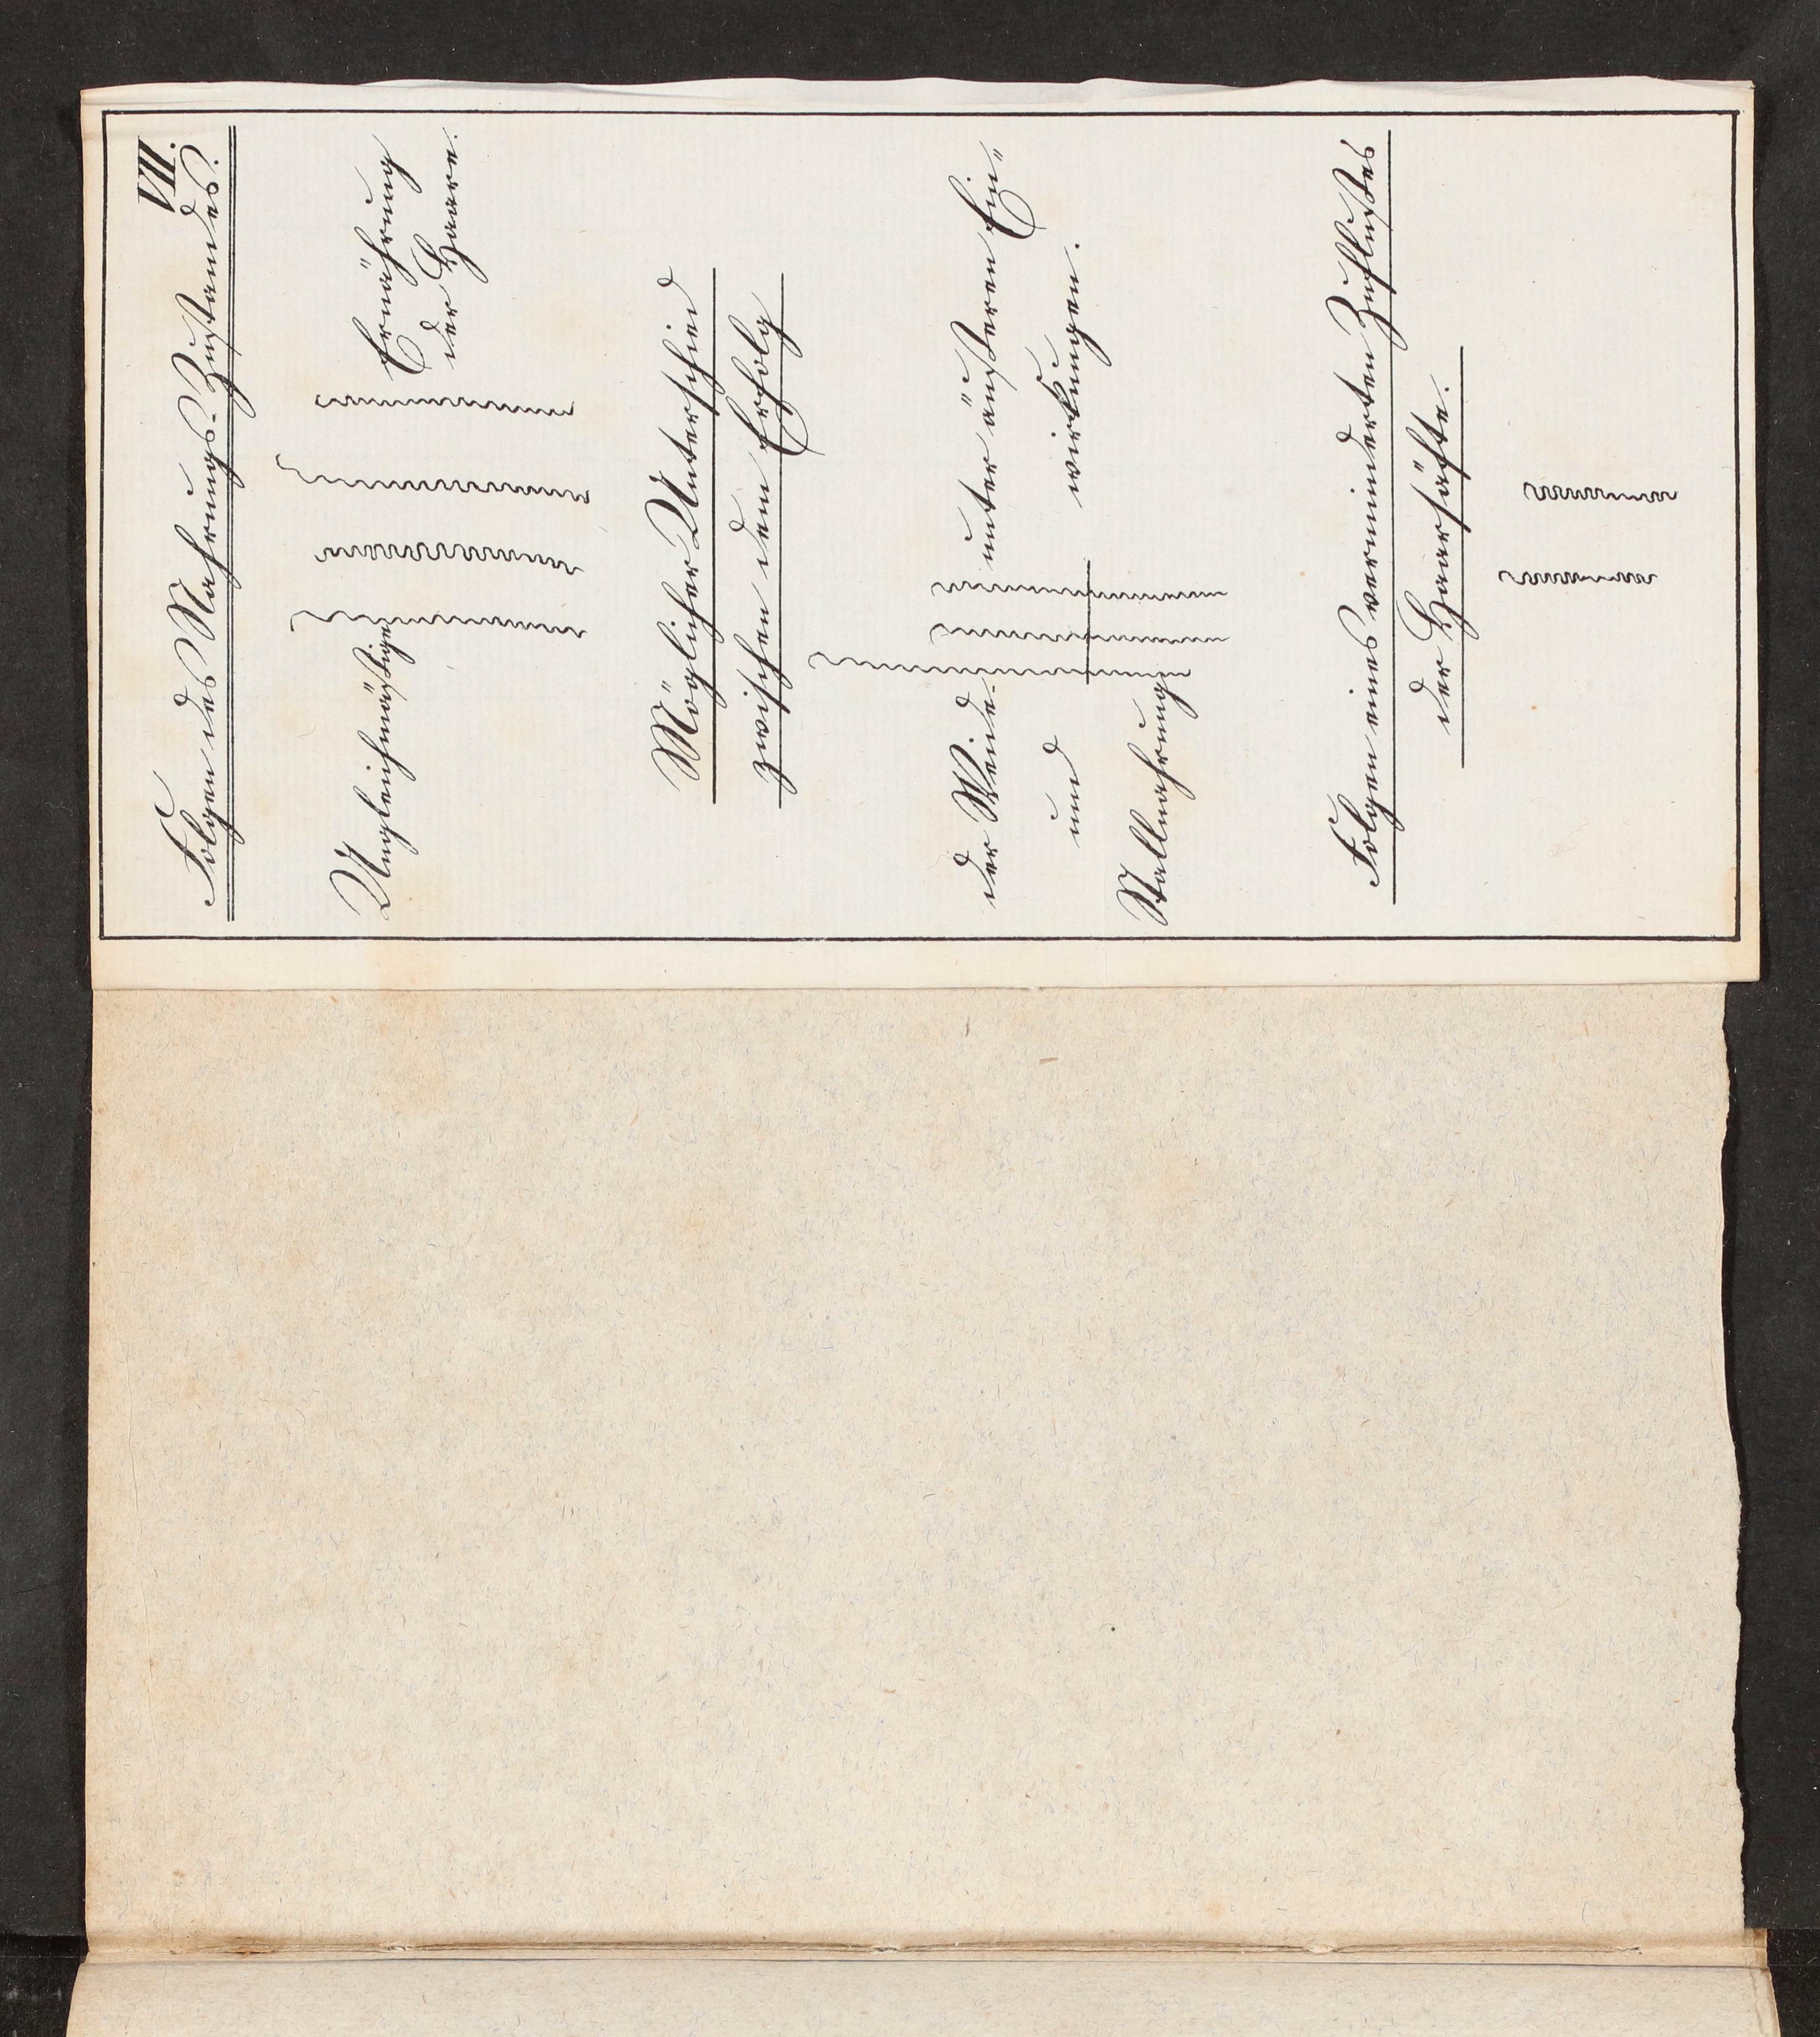 VII.
Folgen des Nahrungs-Zustandes.
Ungleichmäßige
Ernährung
der Haare.
Möglicher Unterschied
zwischen dem Erfolg
der Weide-
und
Stallnahrung
unter äußeren Ein„
wirkungen.
Folgen eines verminderten Zuflußes
der Haarsäfte.